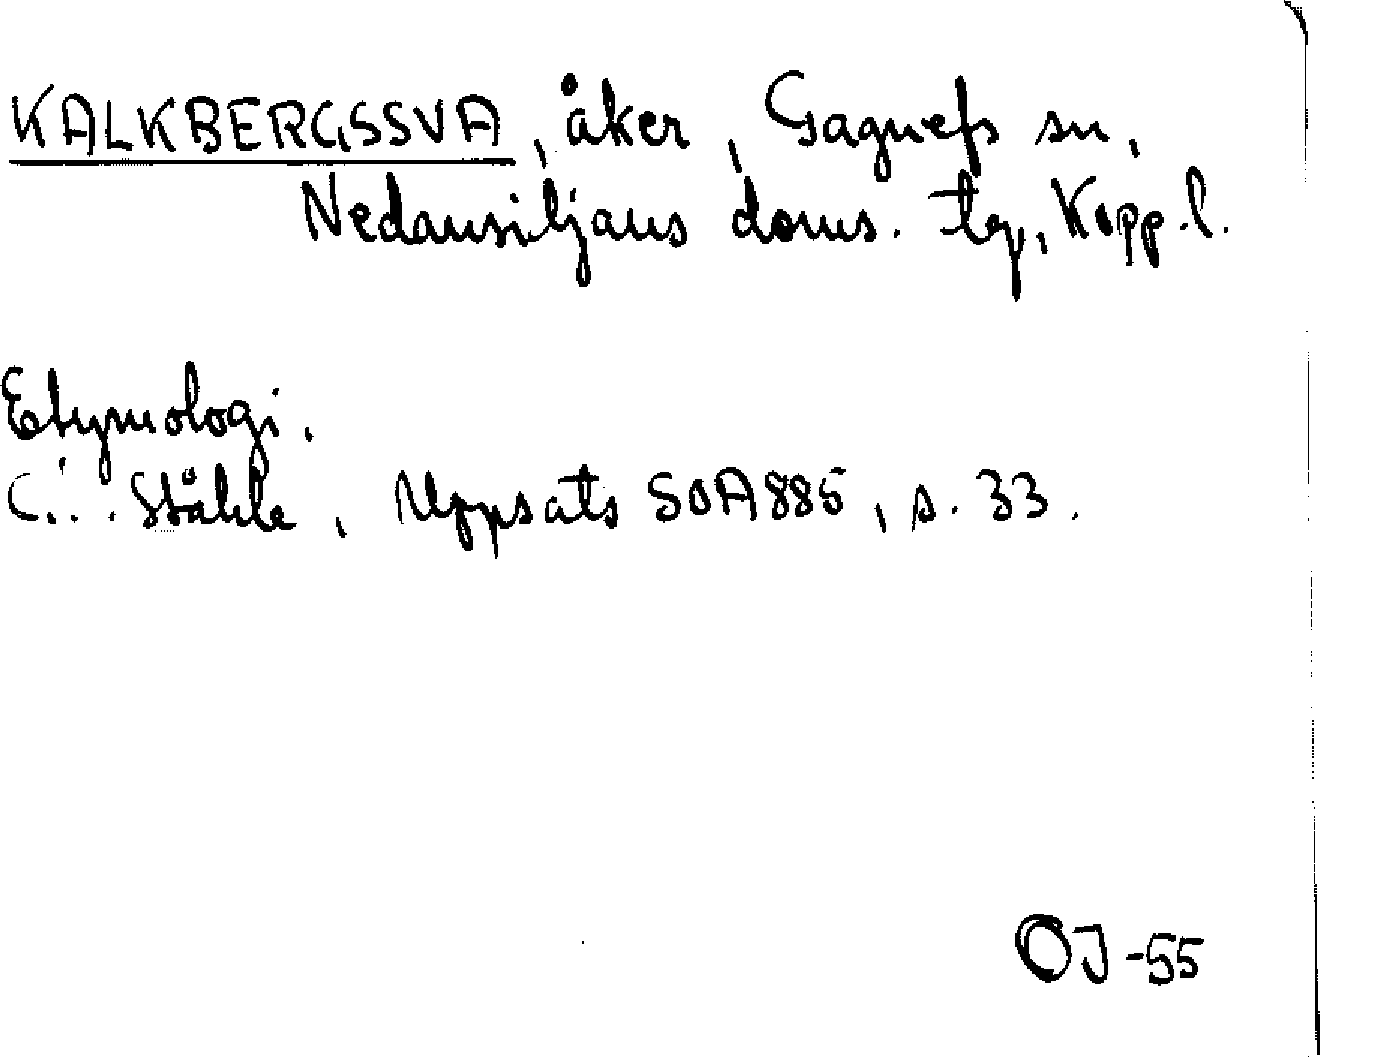 KALKBERGSSVA, åker, Gagnefs sn,
Nedansiljans doms. tg, Kopp.l.
Etymologi.
C. Ståhle, Uppsats SOA 885, s. 33.
OJ-55